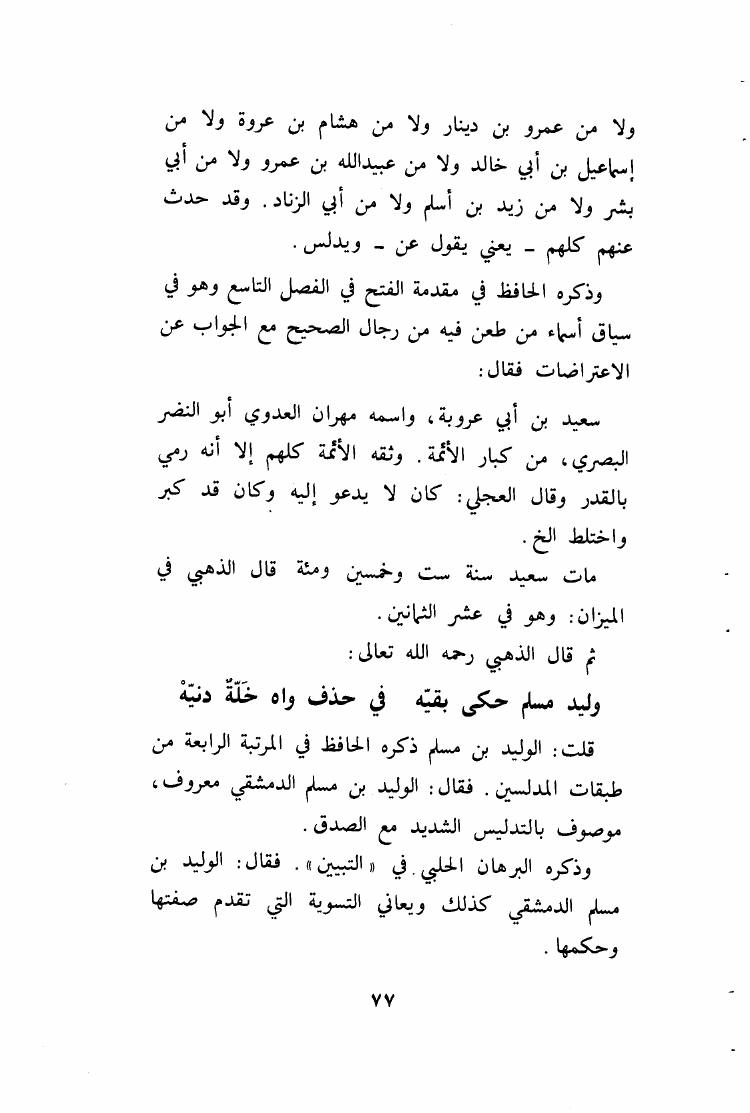 ولا من عمرو بن دينار ولا من هشام بن عروة ولا من
إسماعيل بن أبي خالد ولا من عبيدالله بن عمرو ولا من أبي
بشر ولا من زيد بن أسلم ولا من أبي الزناد. وقد حدث
عنهم كلهم - يعني يقول عن - ويدلس.
وذكره الحافظ في مقدمة الفتح في الفصل التاسع وهو في
سياق أسماء من طعن فيه من رجال الصحيح مع الجواب عن
الاعتراضات فقال:
سعيد بن أبي عروبة، واسمه مهران العدوي أبو النضر
البصري، من كبار الأئمة. وثقه الأئمة كلهم إلا أنه رمي
بالقدر وقال العجلي: كان لا يدعو إليه وكان قد كبر
واختلط الخ.
مات سعيد سنة ست وخمسين ومئة قال الذهبي في
الميزان: وهو في عشر الثمانين.
ثم قال الذهبي رحمه الله تعالى:
وليد مسلم حكى بقيّه في حذف واه خَلّةٌ دنيّهْ
قلت: الوليد بن مسلم ذكره الحافظ في المرتبة الرابعة من
طبقات المدلسين. فقال: الوليد بن مسلم الدمشقي معروف،
موصوف بالتدليس الشديد مع الصدق.
وذكره البرهان الحلبي في «التبيين». فقال: الوليد بن
مسلم الدمشقي كذلك ويعاني التسوية التي تقدم صفتها
وحكمها.
٧٧